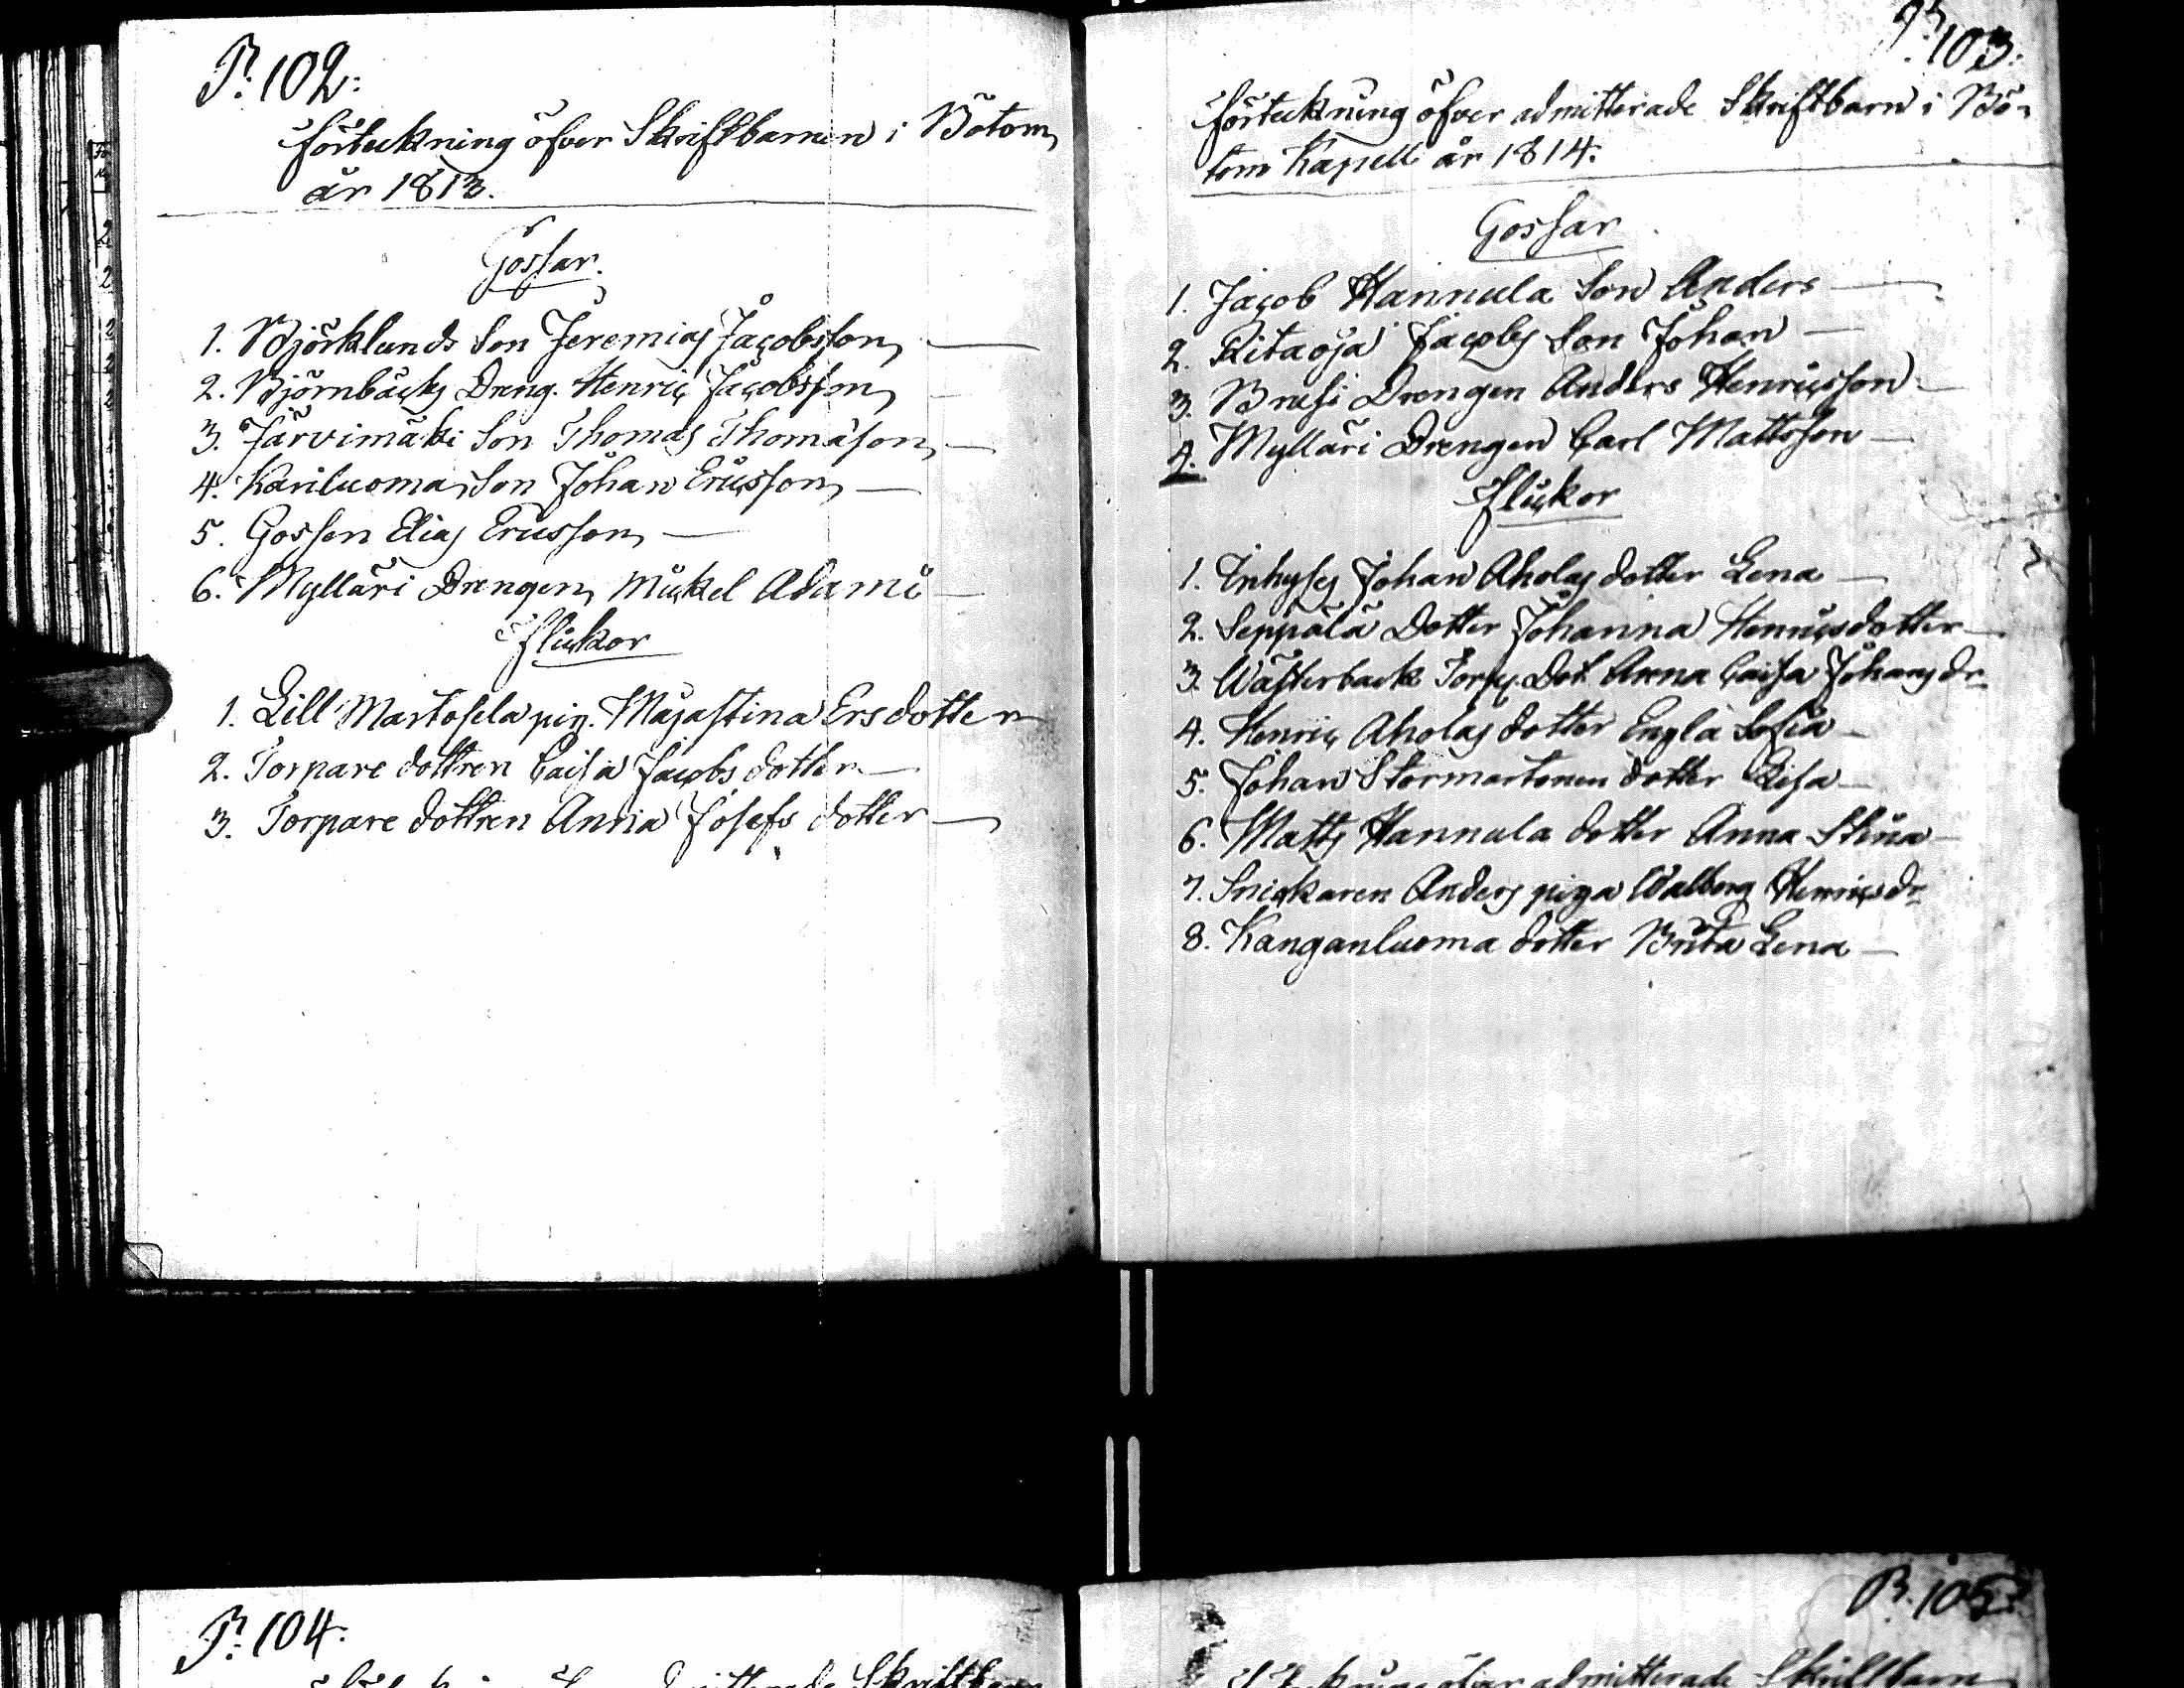 P. 102.
Förteckning öfver Skriftbarnen i Bötom
år 1813.
Gossar.
1. Björklunds Son Jeremias Jacobsson
2. Björnbäcks Dreng. Henric Jacobsson
3. Järvimäki Son Thomas Thomason
4. Kariluoma Son Johan Ericsson
5. Gossen Elias Ericsson
6. Mylläri Drengen Mickel Adami
Flickor
1. Lill Martosela pig. Majastina Ersdotter
2. Torpare dottren Caisa Jacobs dotter
3. Torpare dottren Anna Josefs dotter
P. 103.
Förteckning öfver admitterade Skriftbarn i Bö-
tom Kapell år 1814.
Gossar
1. Jacob Hannula Son Anders
2. Ritaoja Jacobs Son Johan
3. Brusi Drengen Anders Henricsson
4. Mylläri Drengen Carl Mattsson
Flickor
1. Inhyses Johan Aholas dotter Lena
2. Seppälä Dotter Johanna Henricsdotter
3. Wästerback Torps. Dot. Anna Caisa Johans dr.
4. Henric Aholas dotter Engla Sofia
5. Johan Stormartonen dotter Lisa
6. Matts Hannula dotter Anna Stina
7. Snickaren Anders piga Walborg Henrics dr
8. Kanganluoma dotter Brita Lena
P. 104.
P. 105.
admitterade Skriftbarn